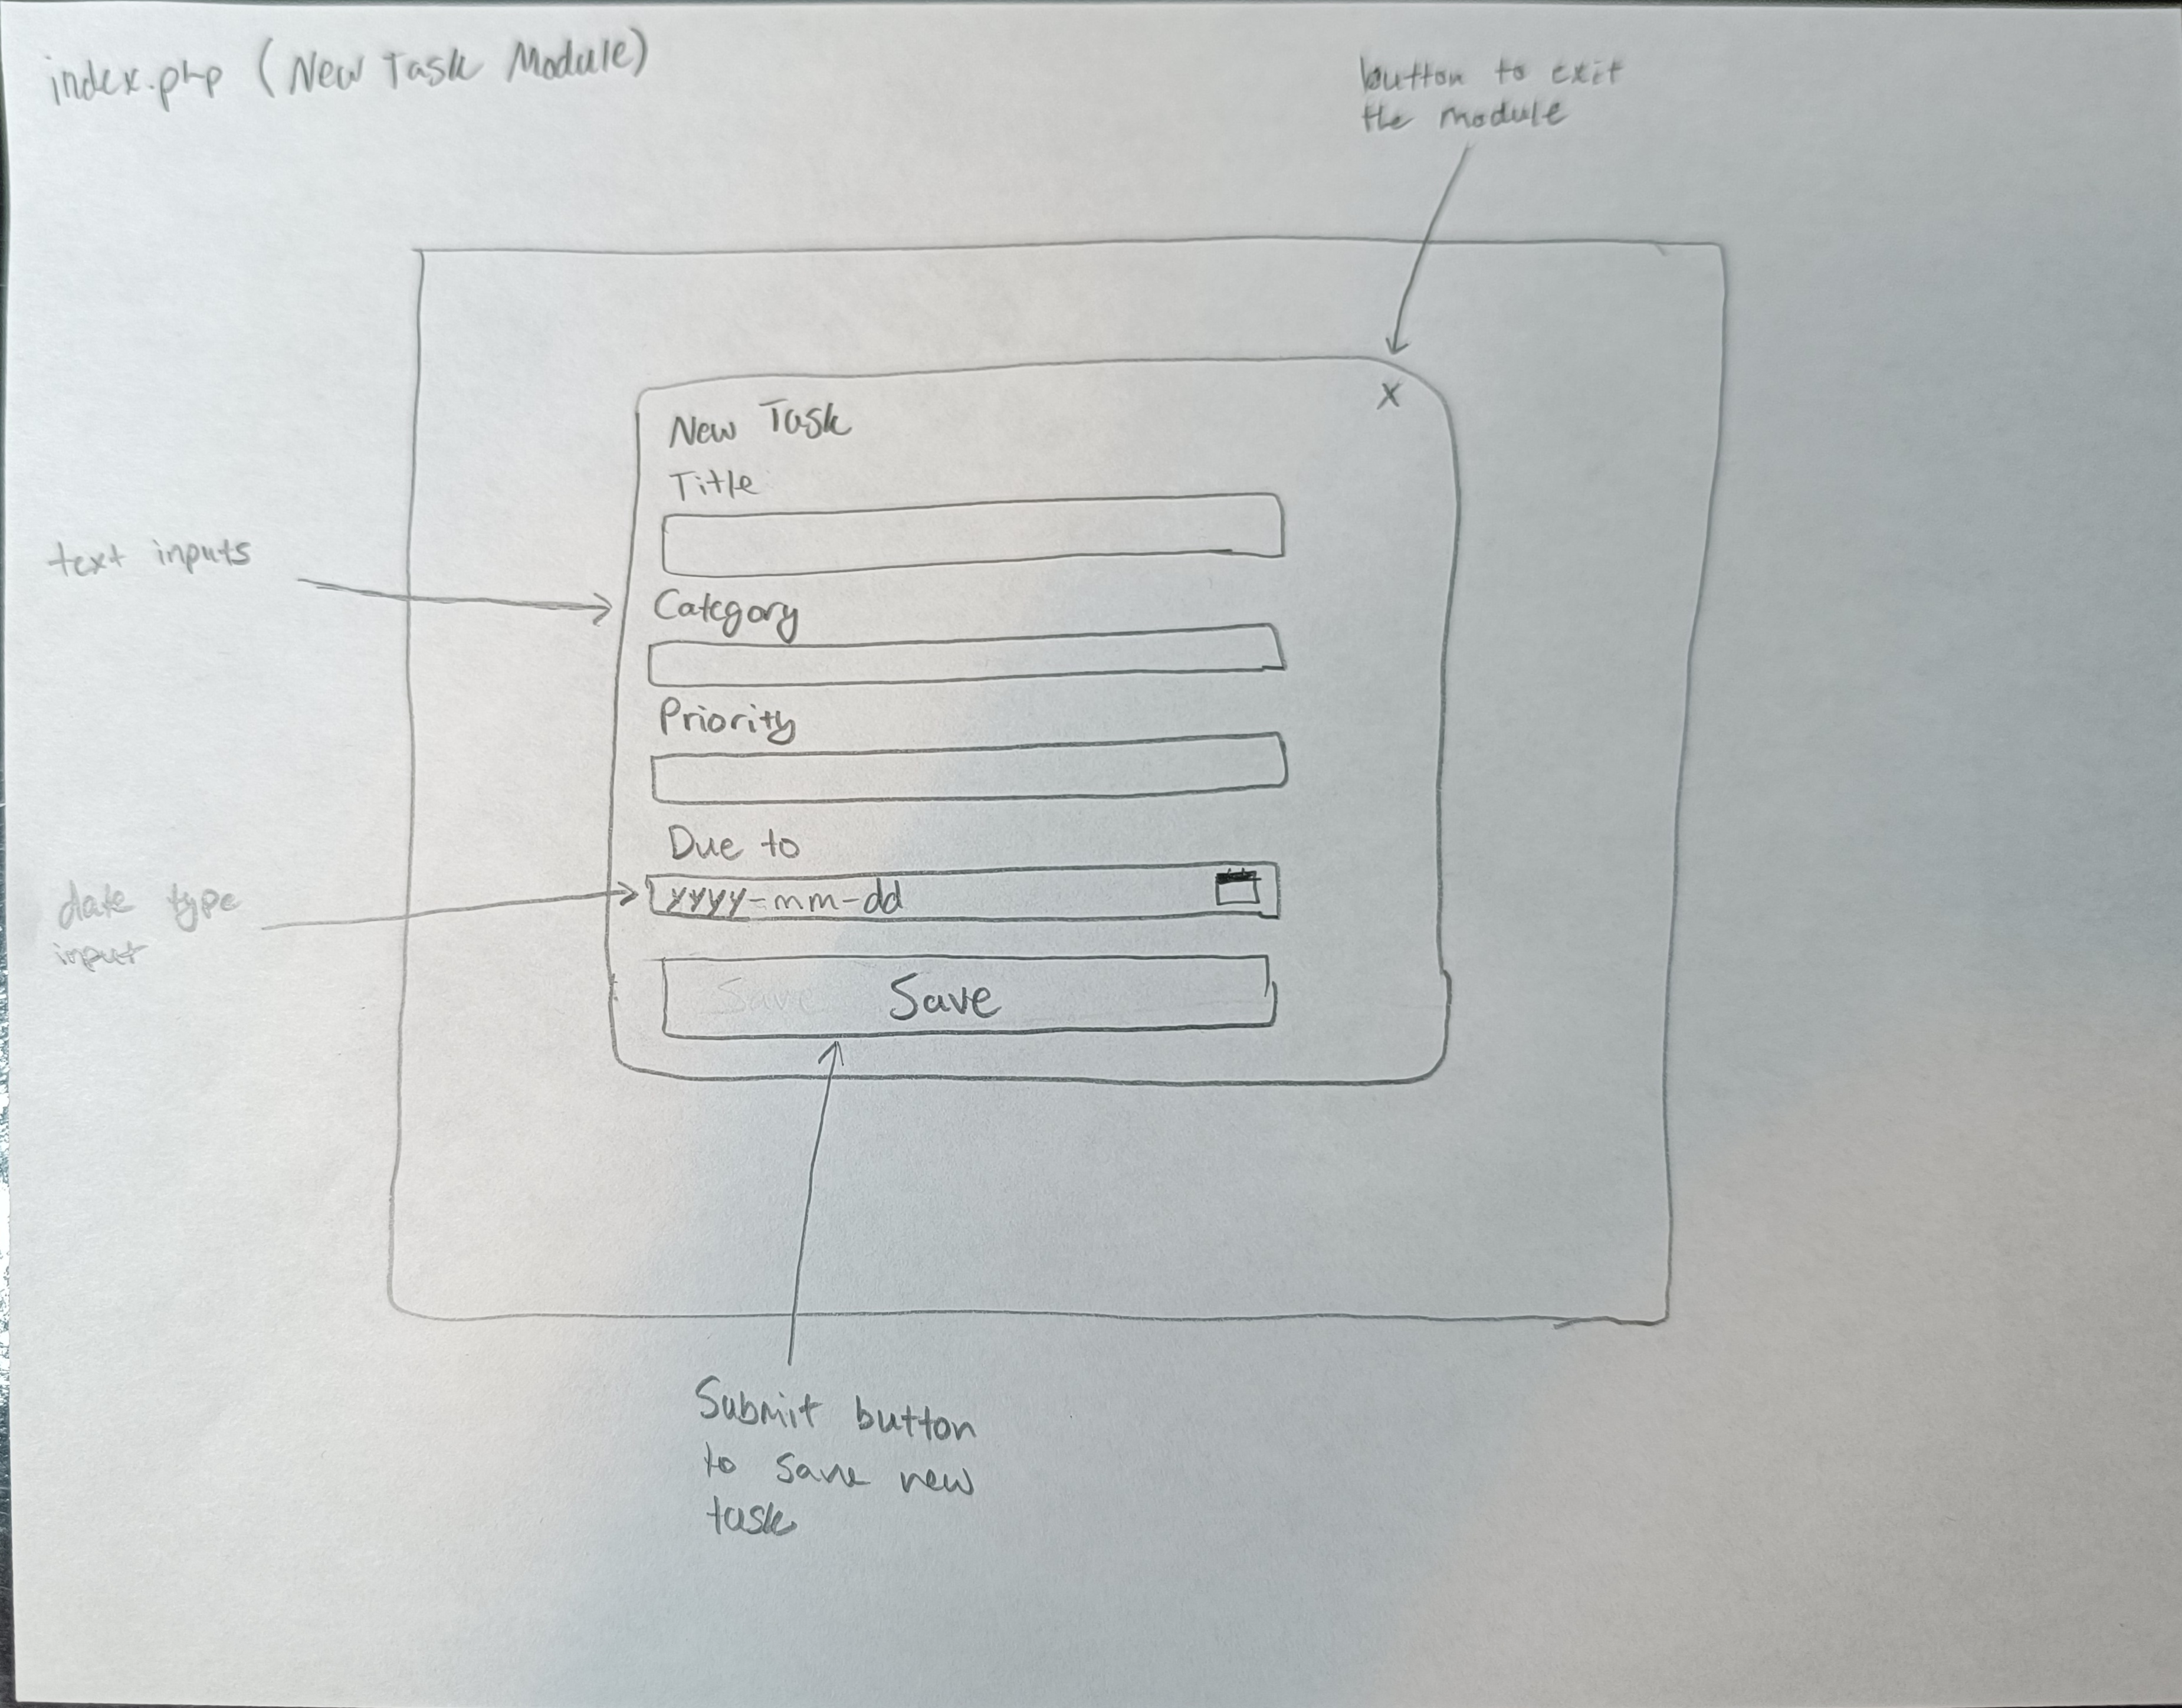 index.php (New Task Module)
button to exit
the module
X
New Task
Title
text inputs
Category
Priority
Due to
date type
input
yyyy-mm-dd
Save Save
Submit button
to save new
task